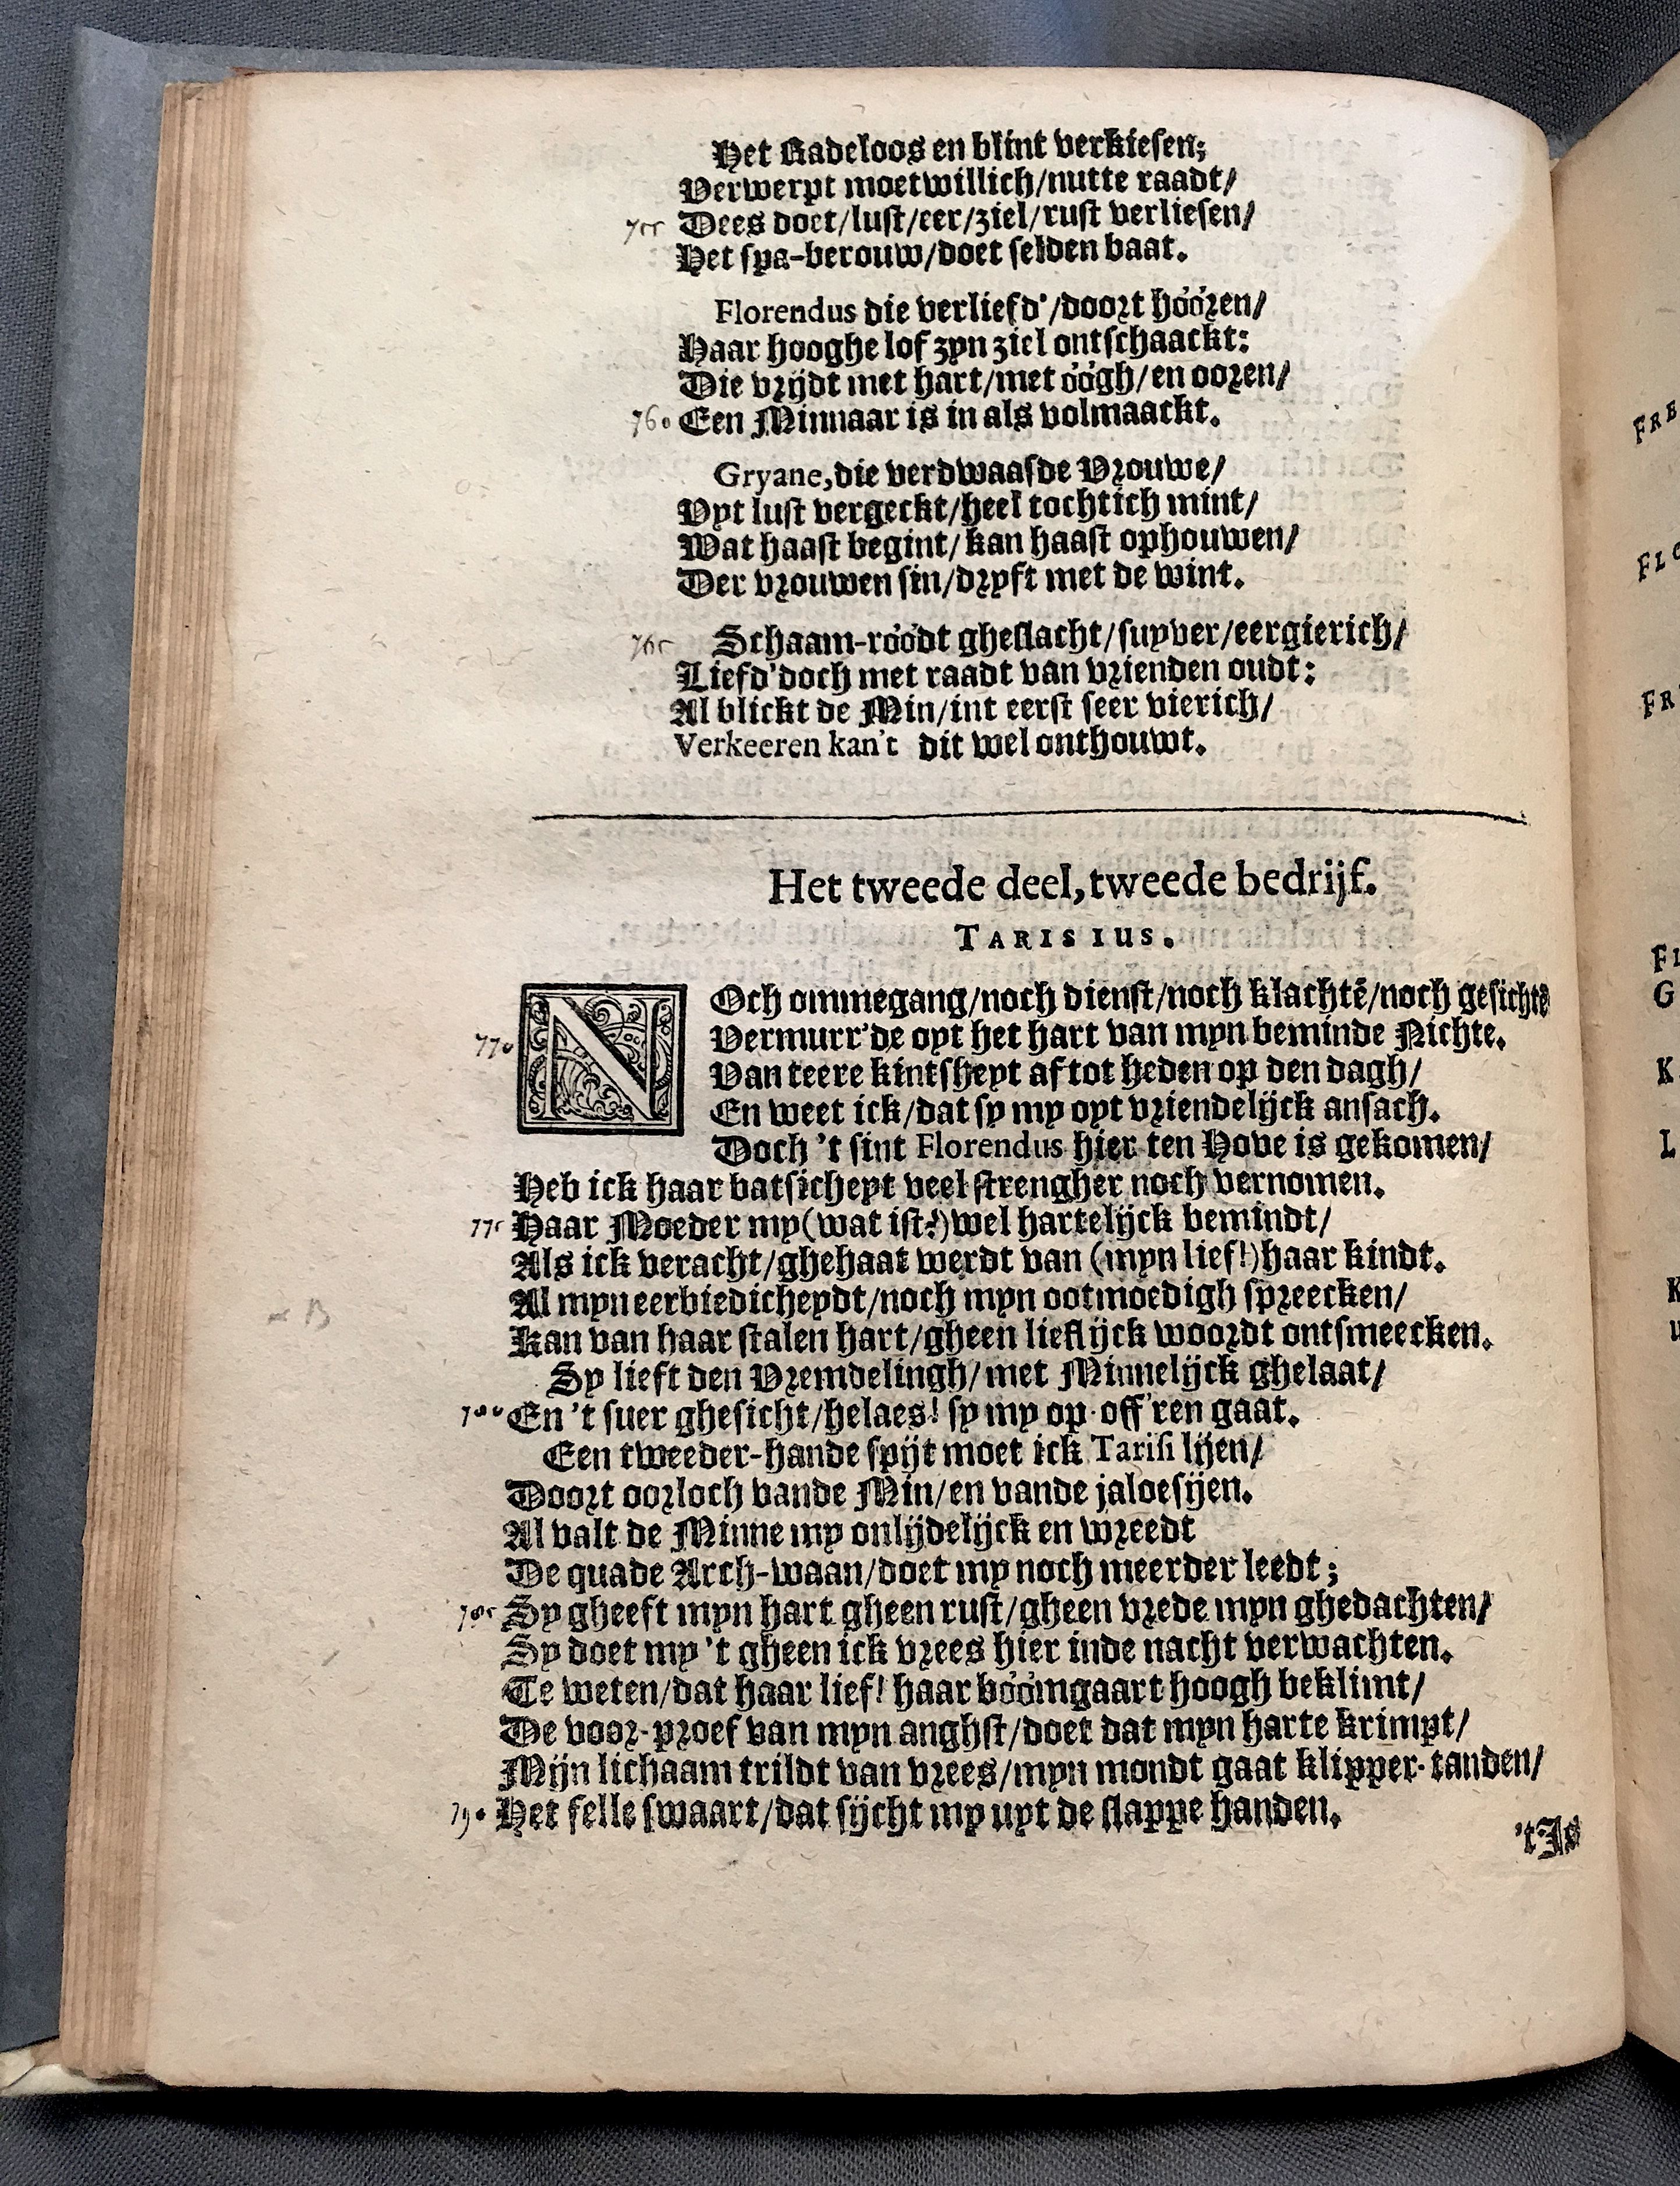 Het Radeloos en blint verkiesen;
Verwerpt moetwillich/nutte raadt/
755 Dees doet/lust/eer/ziel/rust verliesen/
Het spa-berouw/doet selden baat.
Florendus die verliefd'/doort hóóren/
Haar hooghe lof zyn ziel ontschaackt:
Die vrijdt met hart/met óógh/en ooren/
760 Een Minnaar is in als volmaackt.
Gryane, die verdwaasde Vrouwe/
Vyt lust vergeckt/heel tochtich mint/
Wat haast begint/kan haast ophouwen/
Der vrouwen sin/dryft met de wint.
765 Schaam-róódt gheslacht/suyver/eergierich/
Liefd'doch met raadt van vrienden oudt:
Al blickt de Min/int eerst seer vierich/
Verkeeren kan't dit wel onthouwt.
Het tweede deel, tweede bedrijf.
TARISIUS.
NOch ommegang/noch dienst/noch klachtē/noch gesichtē
770 Vermurr'de oyt het hart van myn beminde Nichte.
Van teere kintsheyt af tot heden op den dagh/
En weet ick/dat sy my oyt vriendelijck ansach.
Doch 't sint Florendus hier ten Hove is gekomen/
Heb ick haar batsicheyt veel strengher noch vernomen.
775 Haar Moeder my (wat ist?) wel hartelijck bemindt/
Als ick veracht/ghehaat werdt van (myn lief!) haar kindt.
Al myn eerbiedicheydt/noch myn ootmoedigh spreecken/
Kan van haar stalen hart/gheen lieflijck woordt ontsmeecken.
Sy lieft den Vremdelingh/met Minnelijck ghelaat/
780 En 't suer ghesicht/helaes! sy my op-off'ren gaat.
Een tweeder-hande spijt moet ick Tarisi lijen/
Doort oorloch vande Min/en vande jaloesijen.
Al valt de Minne my onlijdelijck en wreedt
De quade Arch-waan/doet my noch meerder leedt;
785 Sy gheeft myn hart gheen rust/gheen vrede myn ghedachten/
Sy doet my 't gheen ick vrees hier inde nacht verwachten.
Te weten/dat haar lief! haar bóómgaart hoogh beklimt/
De voor-proef van myn anghst/doet dat myn harte krimpt/
Mijn lichaam trildt van vrees/myn mondt gaat klipper-tanden/
790 Het felle swaart/dat sijcht my uyt de slappe handen.
't Is